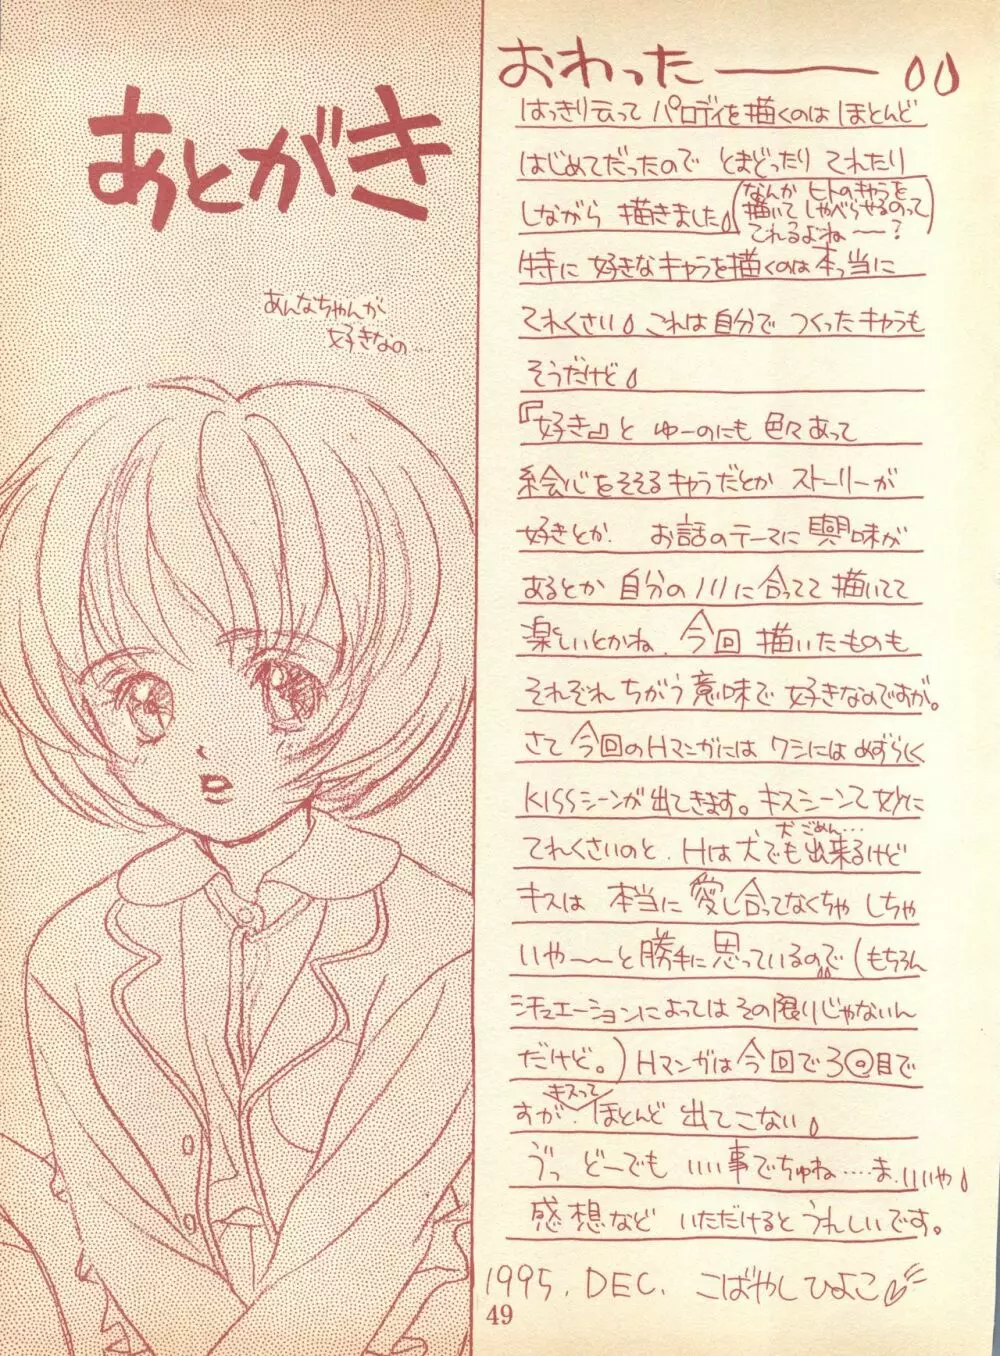 あとがき
あんなちゃんが
好きなの……
おわったーー
はっきり云って パロディを描くのは ほとんど
はじめてだったので とまどったり てれたり
しながら 描きました
(なんか ヒトのキャラを
描いて しゃべらせるのって
てれるよね〜?)
特に 好きなキャラを描くのは 本っ当に
てれくさい これは自分で つくったキャラも
そうだけど
『好き』と ゆーのにも 色々あって
絵心をそそるキャラだとか ストーリーが
好きとか. お話のテーマに興味が
あるとか 自分のノリに合ってて 描いてて
楽しいとかね. 今回 描いたものも
それぞれ ちがう意味で 好きなのですが。
さて 今回のHマンガには ワシには めずらしく
KISSシーンが出てきます。キスシーンて妙に
てれくさいのと. Hは犬でも出来るけど
犬ごめん…
キスは 本当に愛し合ってなくちゃ しちゃ
いや〜〜と勝手に思っているので (もちろん
シチュエーションによっては その限りじゃないん
だけど。) Hマンガは今回で3回目で
すが. キスって ほとんど 出てこない
ゔっ どーでも いい事でちゅね……ま.いいや
感想など いただけると うれしいです。
1995. DEC. こばやしひよこ
49